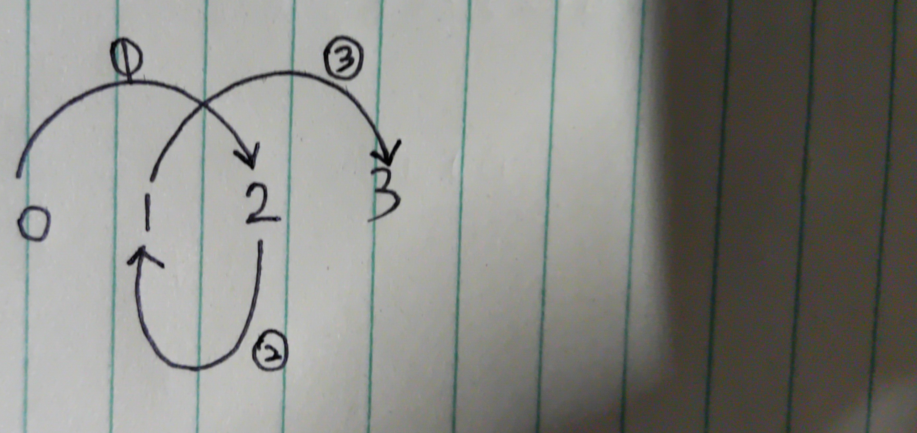 ① ③
0 1 2 3
②